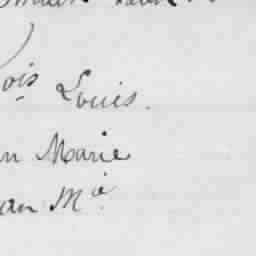 ois Louis.
n Marie
an Mie